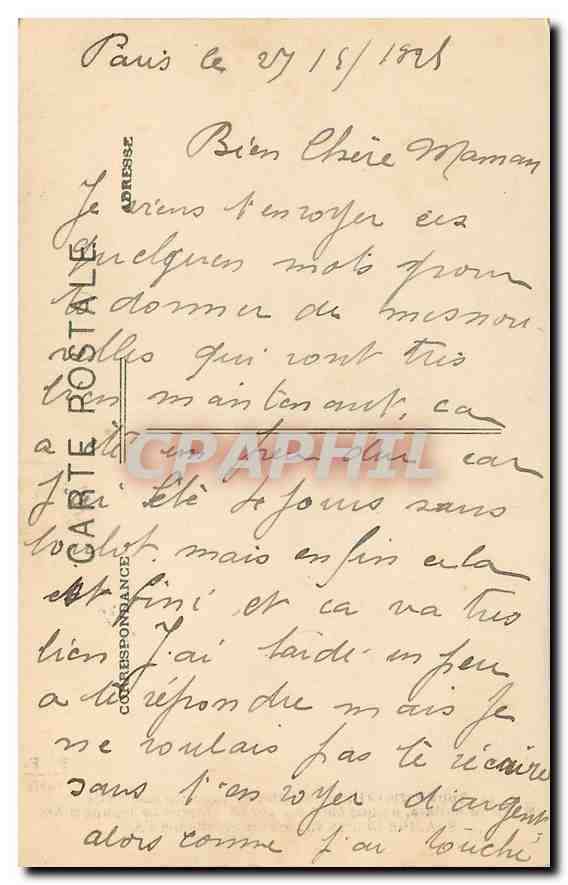 Paris le 27/5/1925
Bien Chère Maman
Je viens t'envoyer ces
quelques mots pour
te donner de mes nou-
velles qui vont très
bien maintenant, ca
a été un peu dur car
J'ai été 4 Jours sans
boulot, mais enfin cela
est fini et ca va tres
bien J.ai tardé un peu
a te répondre mais Je
ne voulais pas te récrire
sans t'envoyer d'argent
alors comme J'ai touché
CARTE POSTALE
CORRESPONDANCE
ADRESSE
CPAPHIL